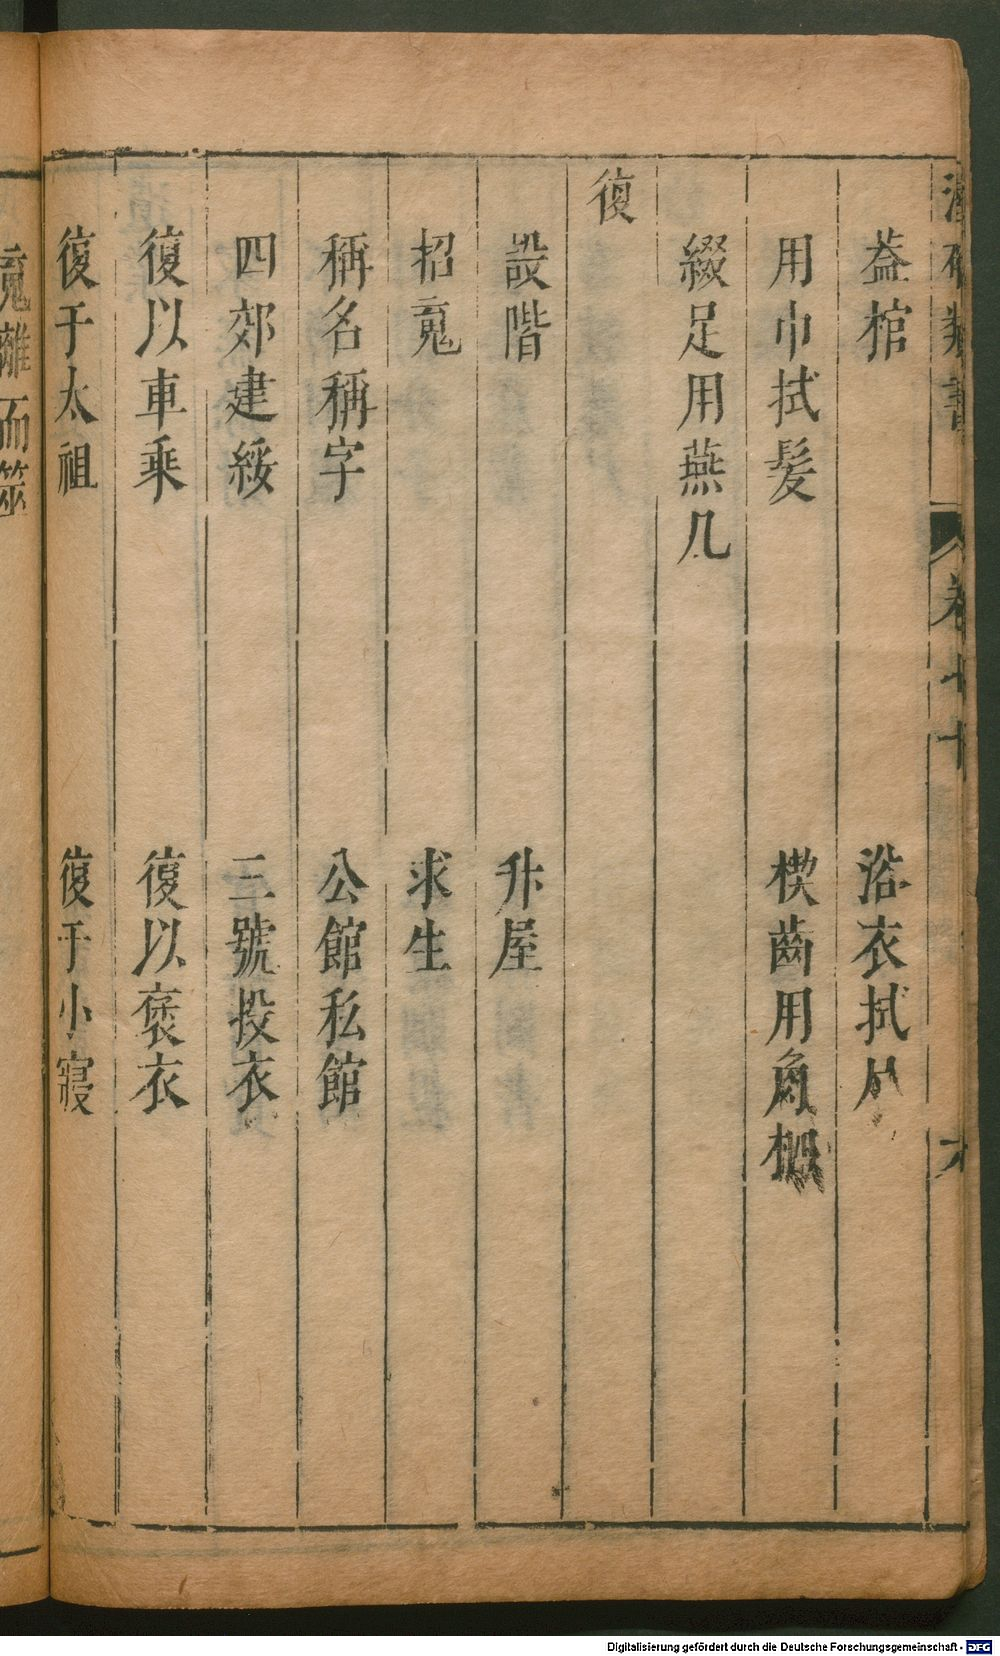 卷七十
葢棺 浴衣拭尸
用巾拭髪 楔齒用角柶
綴足用燕几
復
設階 升屋
招䰟 求生
稱名稱字 公館私館
四郊建綏 三號投衣
復以車乘 復以褒衣
復于太祖 復于小寢
離而
Digitalisierung gefördert durch die Deutsche Forschungsgemeinschaft - DFG